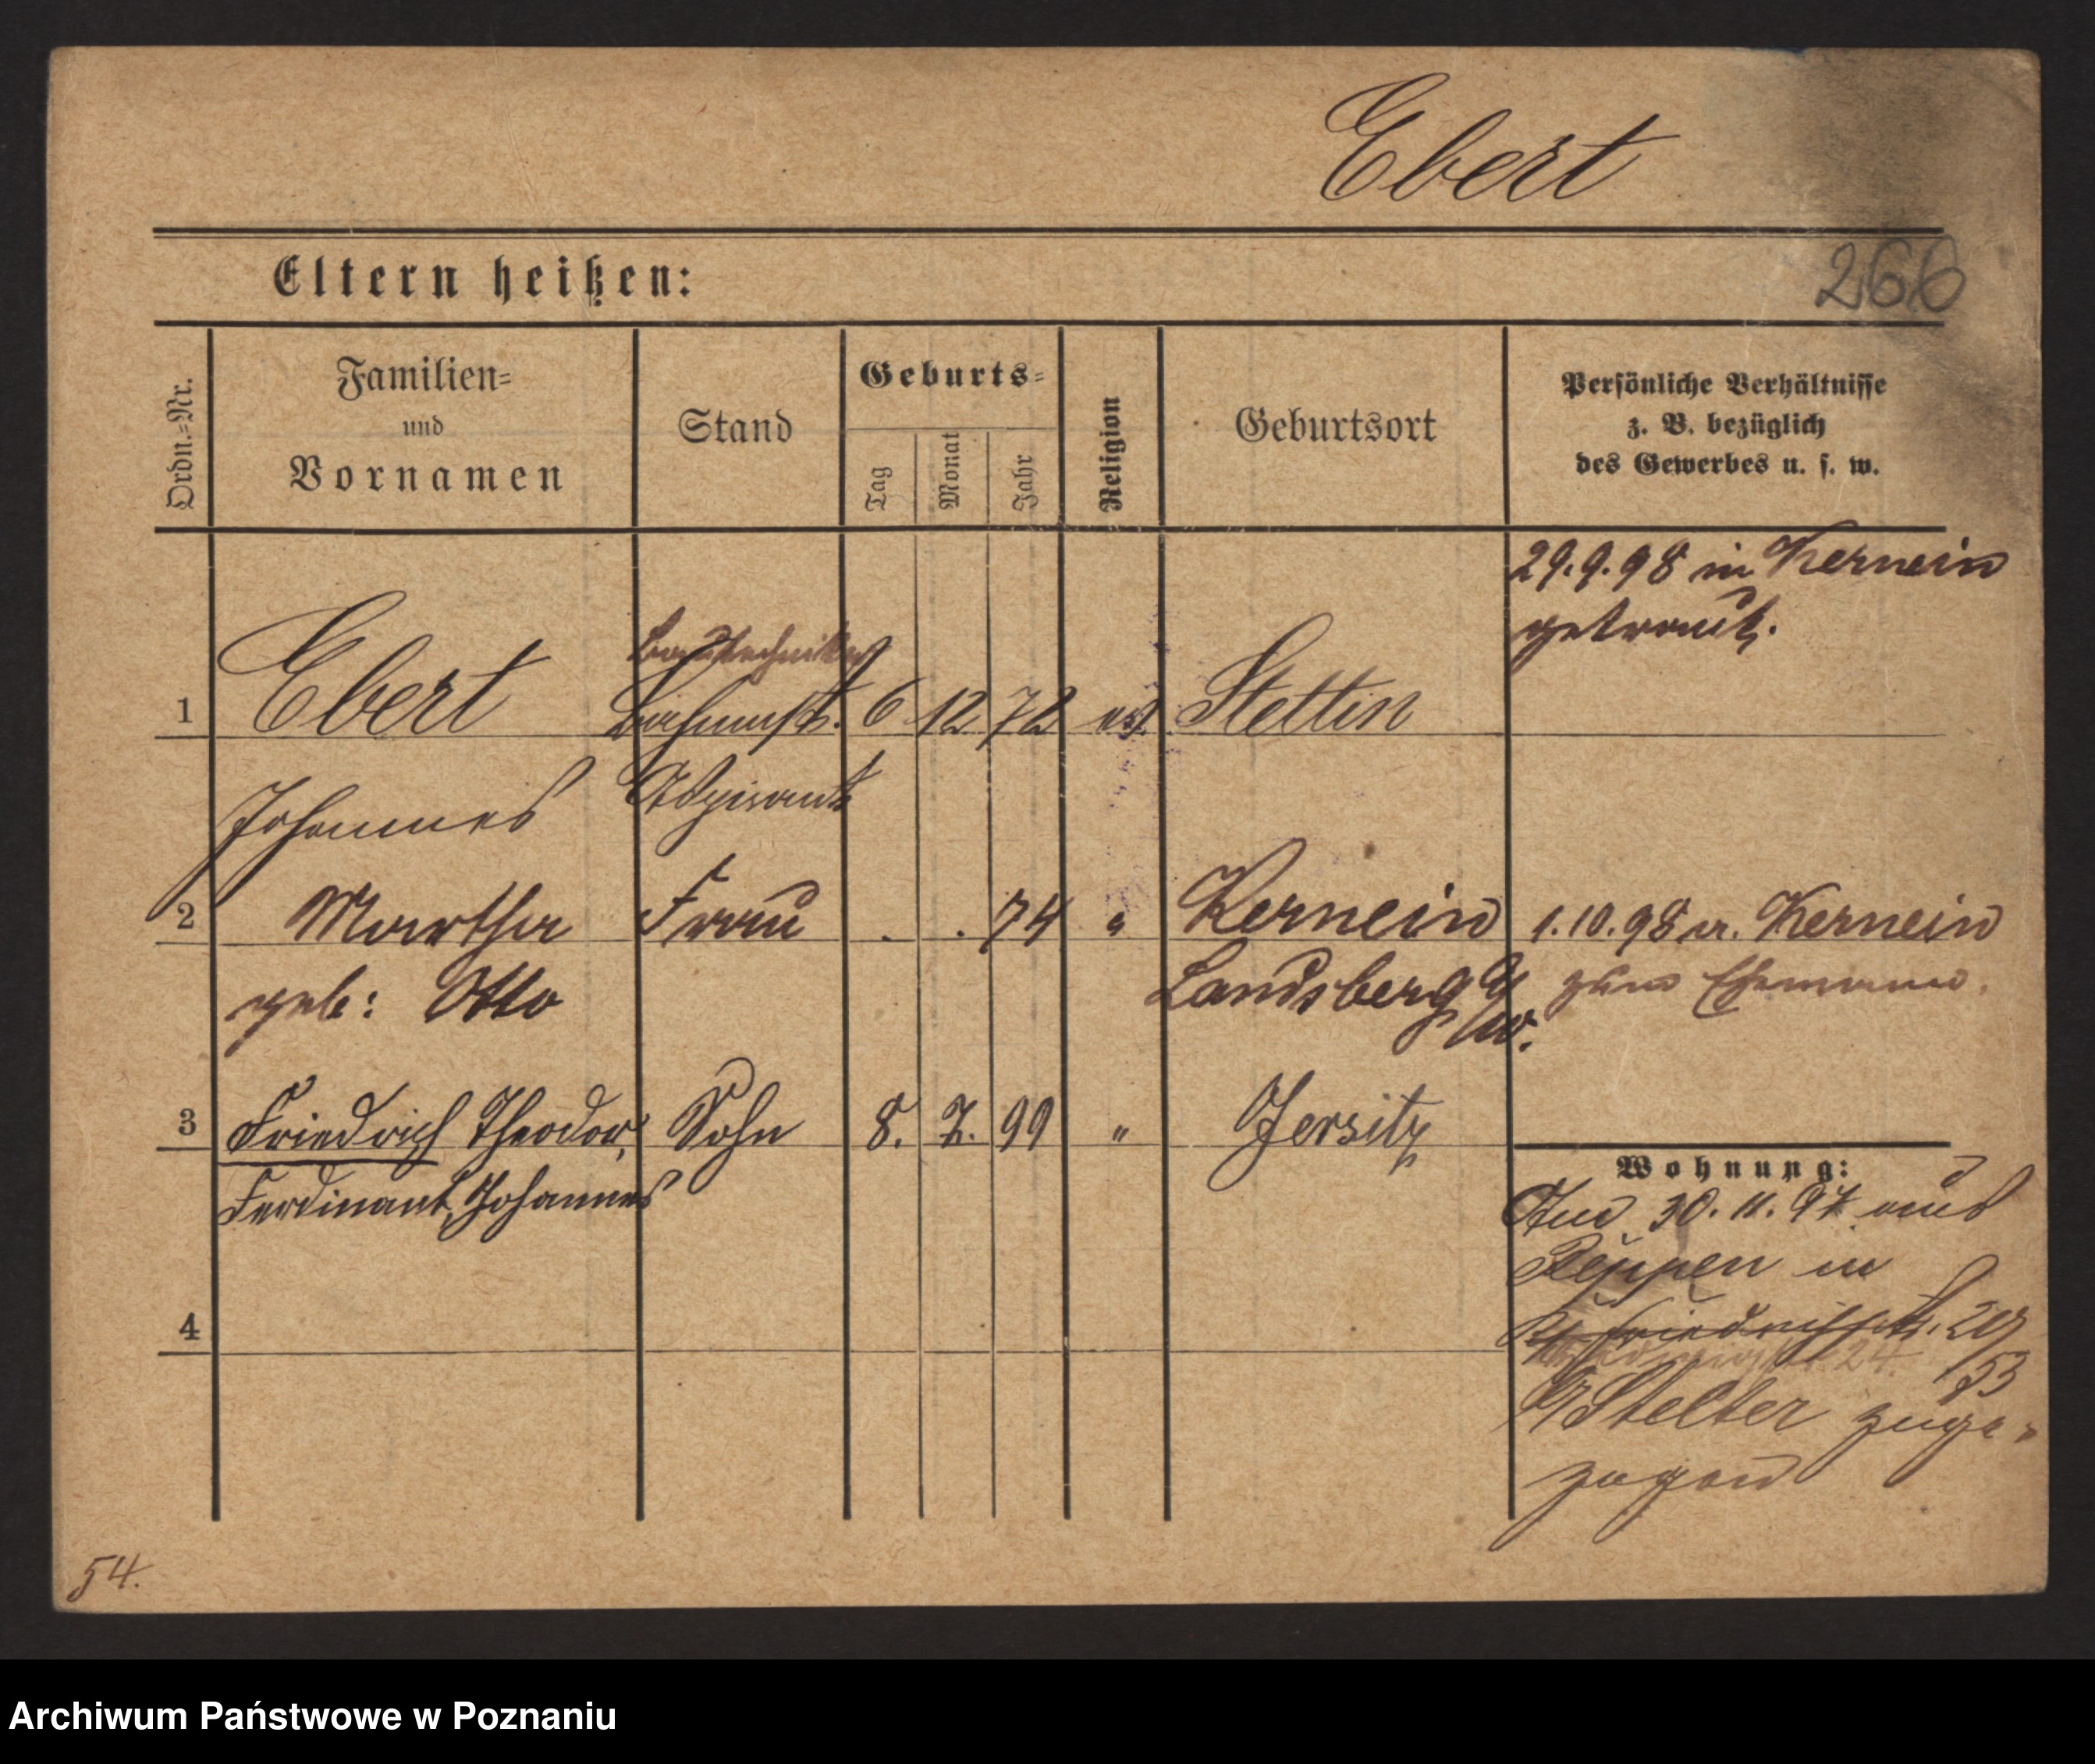 Ebert
266
Eltern heißen:
Ordn.=Nr.
Familien=
und
Vornamen
Stand
Geburts=
Tag
Monat
Jahr
Religion
Geburtsort
Persönliche Verhältnisse
z. B. bezüglich
des Gewerbes u. s. w.
29.9.98 in Kernein
getraut.
Bautechniker
1 Ebert 6 12 72 ev. Stettin
Johannes Aspirant
2 Martha Frau . . 74 " Kernein 1.10.98 a. Kernein
geb: Otto Landsberg a/W. zum Ehemann.
3 Friedrich Theodor, Sohn 8. 7. 99 " Jersitz
Ferdinant, Johannes
Wohnung:
Am 30. 11. 97 aus
Reppen in
Friedrichstr. 29
24
53
b/ Stelter zuge-
zogen
4
54.
Archiwum Państwowe w Poznaniu